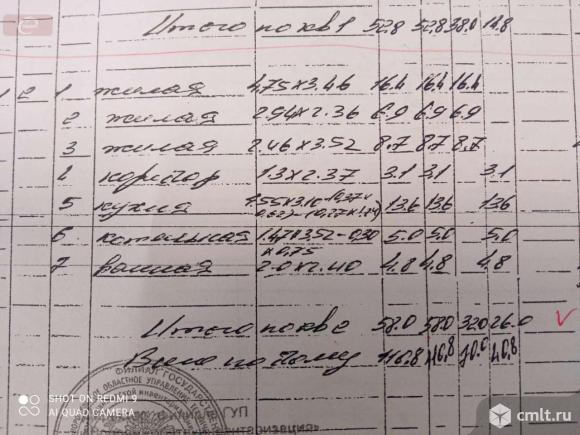 Итого по кв 1 52.8 52.8 38.0 14.8
1 2 1 жилая 4.75×3.46 16.4 16.4 16.4
2 жилая 2.94×2.36 6.9 6.9 6.9
3 жилая 2.46×3.52 8.7 8.7 8.7
4 коридор 1.3×2.37 3.1 3.1 3.1
5 кухня 13.6 13.6 13.6
6 котельная 1.47×3.52-0.30×0.75 5.0 5.0 5.0
7 ванная 2.0×2.40 4.8 4.8 4.8
Итого по кв 2 58.0 58.0 32.0 26.0
Всего по дому 110.8 110.8 70.0 40.8
ФИЛИАЛ ГОСУДАР
ОБЛАСТНОЕ УПРАВЛЕНИ
ГУП
SHOT ON REDMI 9
AI QUAD CAMERA
cmlt.ru